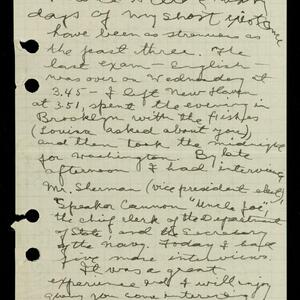 days of my short existence
have been as strenuous as
the past three. The
last exam - English -
was over on Wednesday at
3.45 - I left New Haven
at 3.51, spent the evening in
Brooklyn with the Fishes
(Louisa asked about you)
and then took the midnight
for Washington. By late
afternoon I had interviewed
Mr. Sherman (vice president elect),
"Speaker Cannon "Uncle Joe",
the chief clerk of the Department
of State, and the Secretary
of the Navy. Today I had
five more interviews.
It was a great
experience and I will enjoy